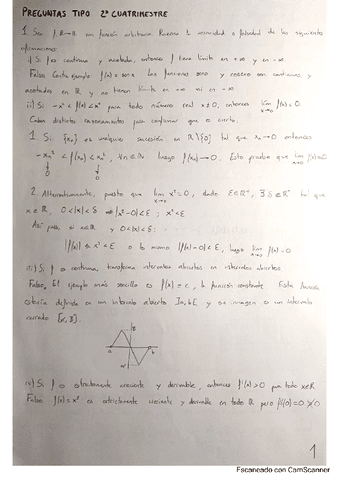 PREGUNTAS TIPO 2º CUATRIMESTRE
1. Sea f: R→R una función arbitraria. Razona la veracidad o falsedad de las siguientes
afirmaciones:
i) Si f es continua y acotada, entonces f tiene límite en +∞ y en -∞.
Falso. Contraejemplo f(x) = sen x. Las funciones seno y coseno son continuas y
acotadas en R y no tienen límite en +∞ ni en -∞.
ii) Si -x² < f(x) < x² para todo número real x≠0, entonces lim x→0 f(x) = 0.
Caben distintos razonamientos para confirmar que es cierto.
1. Si {xn} es cualquier sucesión en R\{0} tal que xn→0 entonces
-xn² < f(xn) < xn², ∀n∈N luego f(xn)→0. Esto prueba que lim x→0 f(x)=0
↓ ↓
0 0
2. Alternativamente, puesto que lim x→0 x² = 0, dado ε∈R⁺, ∃ δ∈R⁺ tal que
x∈R, 0<|x|<δ ⇒ |x²-0|<ε ; x²<ε
Así pues, si x∈R y 0<|x|<δ:
|f(x)| ≤ x² < ε o lo mismo |f(x)-0|<ε, luego lim x→0 f(x)=0
iii) Si f es continua, transforma intervalos abiertos en intervalos abiertos.
Falso. El ejemplo más sencillo es f(x)=c, la función constante. Esta función
estaría definida en un intervalo abierto ]a,b[ y su imagen es un intervalo
cerrado [α, β].
a b
iv) Si f es estrictamente creciente y derivable, entonces f'(x)>0 para todo x∈R
Falso f(x)=x³ es estrictamente creciente y derivable en todo R pero f'(0)=0 ≯0
1
Escaneado con CamScanner